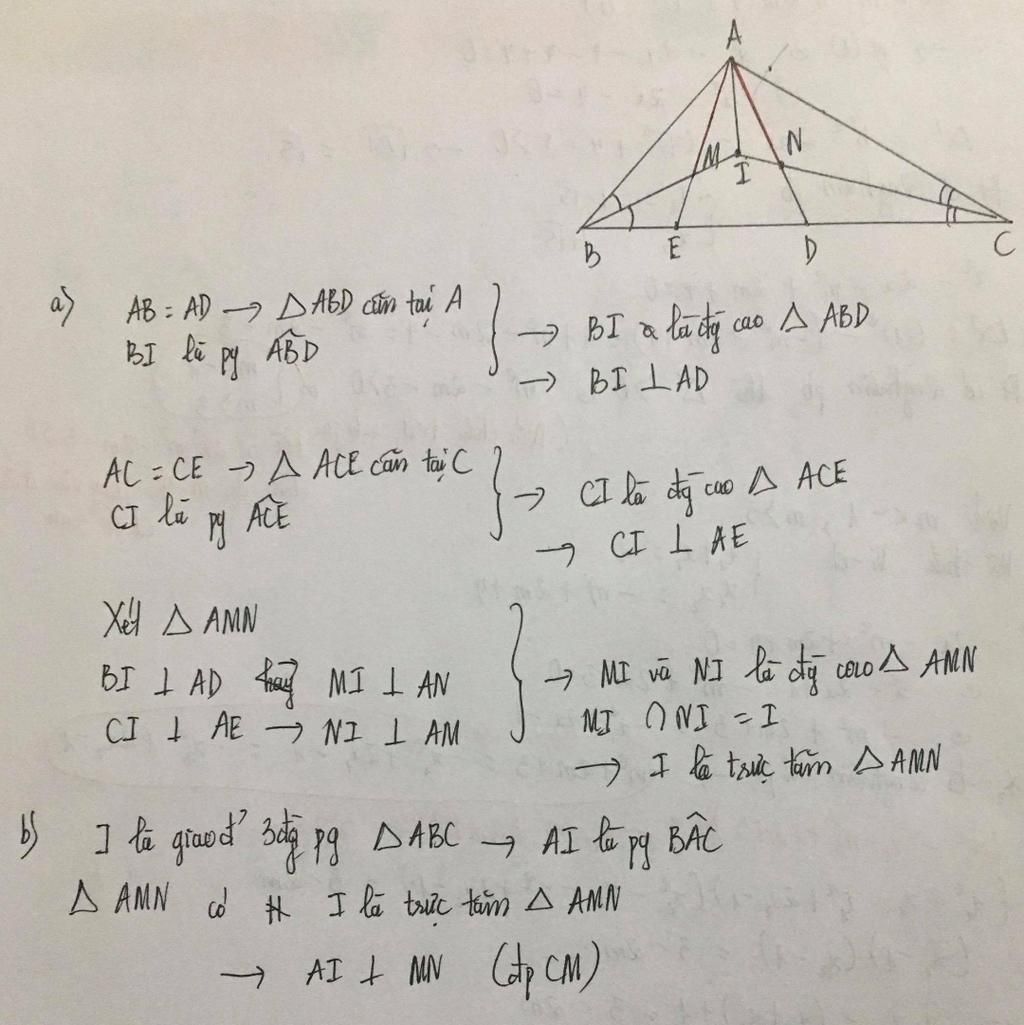 A
M
I
N
B
E
D
C
a) AB = AD → △ ABD cân tại A
BI là pg AB̂D
→ BI là đg cao △ ABD
→ BI ⊥ AD
AC = CE → △ ACE cân tại C
CI là pg AĈE
→ CI là đg cao △ ACE
→ CI ⊥ AE
Xét △ AMN
BI ⊥ AD hay MI ⊥ AN
CI ⊥ AE → NI ⊥ AM
→ MI và NI là đg cao △ AMN
MI ∩ NI = I
→ I là trực tâm △ AMN
b) I là giao đ' 3 đg pg △ ABC → AI là pg BÂC
△ AMN có I là trực tâm △ AMN
→ AI ⊥ MN (đpCM)